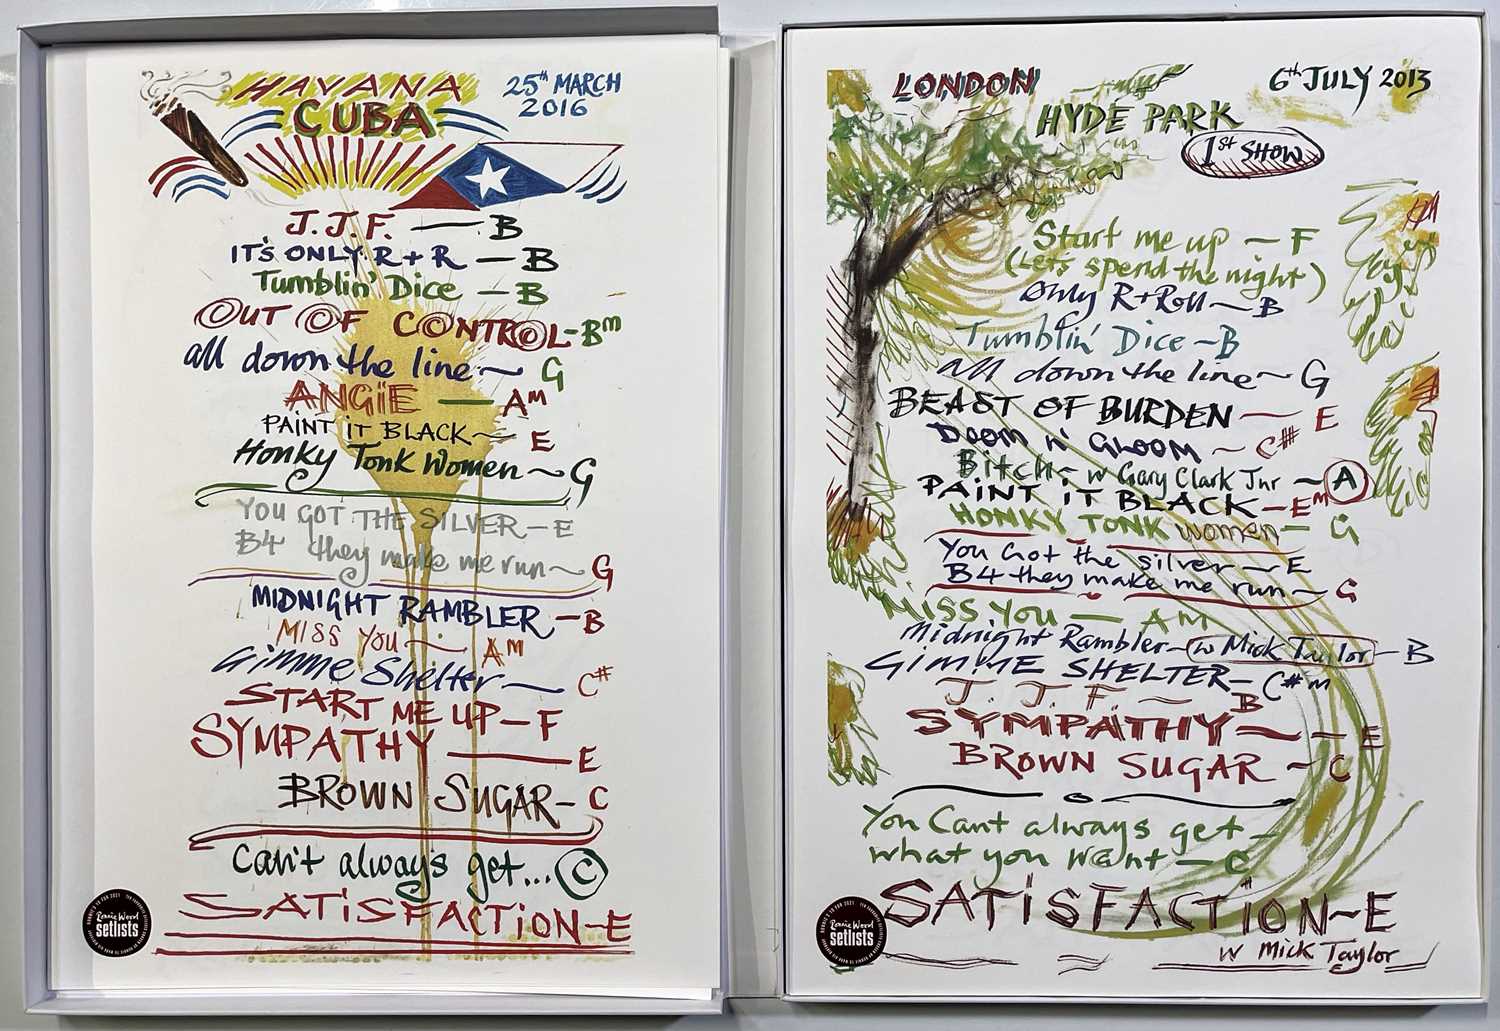 HAVANA
CUBA
25th MARCH
2016
J.J.F. — B
IT'S ONLY R + R — B
Tumblin' Dice — B
OUT OF CONTROL - Bm
all down the line ~ G
ANGiE — Am
PAiNT iT BLACK ~ E
Honky Tonk Women ~ G
YOU GOT THE SILVER — E
B4 they make me run ~ G
MIDNIGHT RAMBLER — B
MISS YOU ~ Am
Gimme Shelter ~ C#
START ME UP — F
SYMPATHY — E
BROWN SUGAR — C
Can't always get... C
SATiSFACTiON — E
Ronnie Wood
setlists
LONDON
HYDE PARK
6th JULY 2013
1st SHOW
Start me up — F
(Let's spend the night)
Only R + Roll ~ B
Tumblin' Dice ~ B
all down the line ~ G
BEAST OF BURDEN — E
DOOM n' GLOOM ~ C#
Bitch ~ w Gary Clark Jnr ~ A
PAiNT iT BLACK — Em
HONKY TONK women — G
You Got the silver ~ E
B4 they make me run ~ G
MISS YOU — Am
Midnight Rambler ~ w Mick Taylor — B
GiMME SHELTER — C#m
J. J. F. — B
SYMPATHY — E
BROWN SUGAR ~ C
You Cant always get —
what you want — C
SATiSFACTiON ~ E
w Mick Taylor
Ronnie Wood
setlists